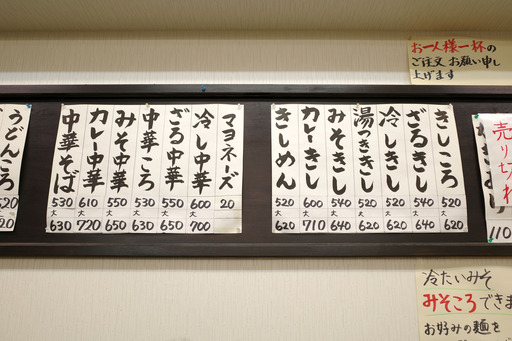 お一人様一杯の
ご注文お願い申し
上げます
うどんころ
520
大
マヨネーズ
20
冷し中華
600
大
700
ざる中華
550
大
650
中華ころ
530
大
630
みそ中華
550
大
650
カレー中華
610
大
720
中華そば
530
大
630
きしころ
520
大
620
ざるきし
540
大
640
冷しきし
520
大
620
湯つききし
520
大
620
みそきし
540
大
640
カレーきし
600
大
710
きしめん
520
大
620
売り切れ
110
冷たいみそ
みそころできま
お好みの麺を